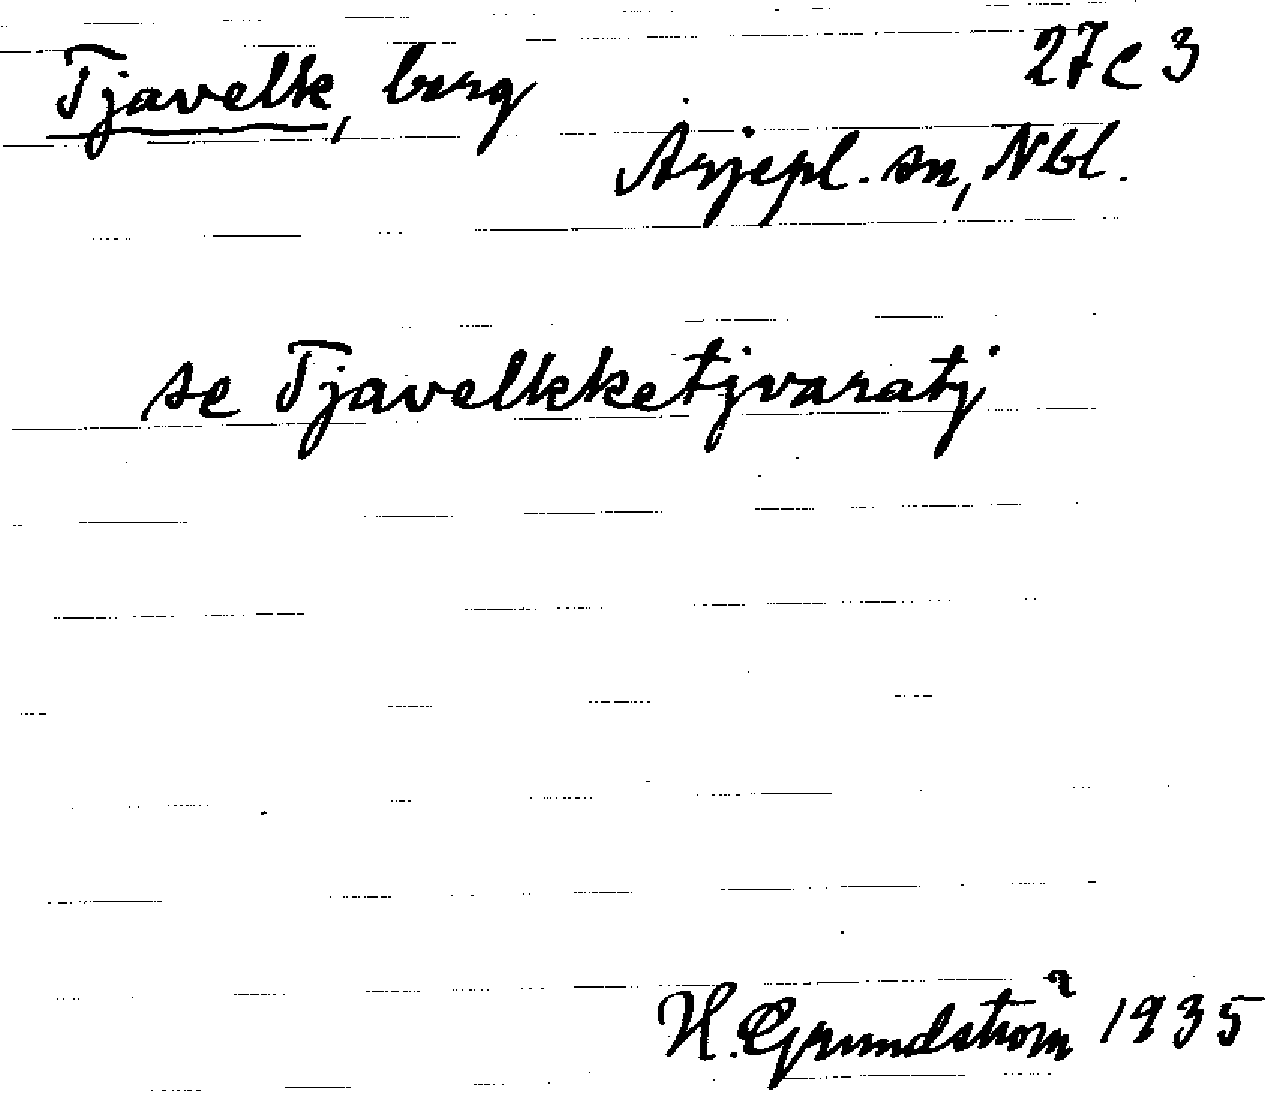 Tjavelk, berg 27c3
Arjepl. sn, Nbl.
se Tjavelkketjvaratj
H. Grundström 1935